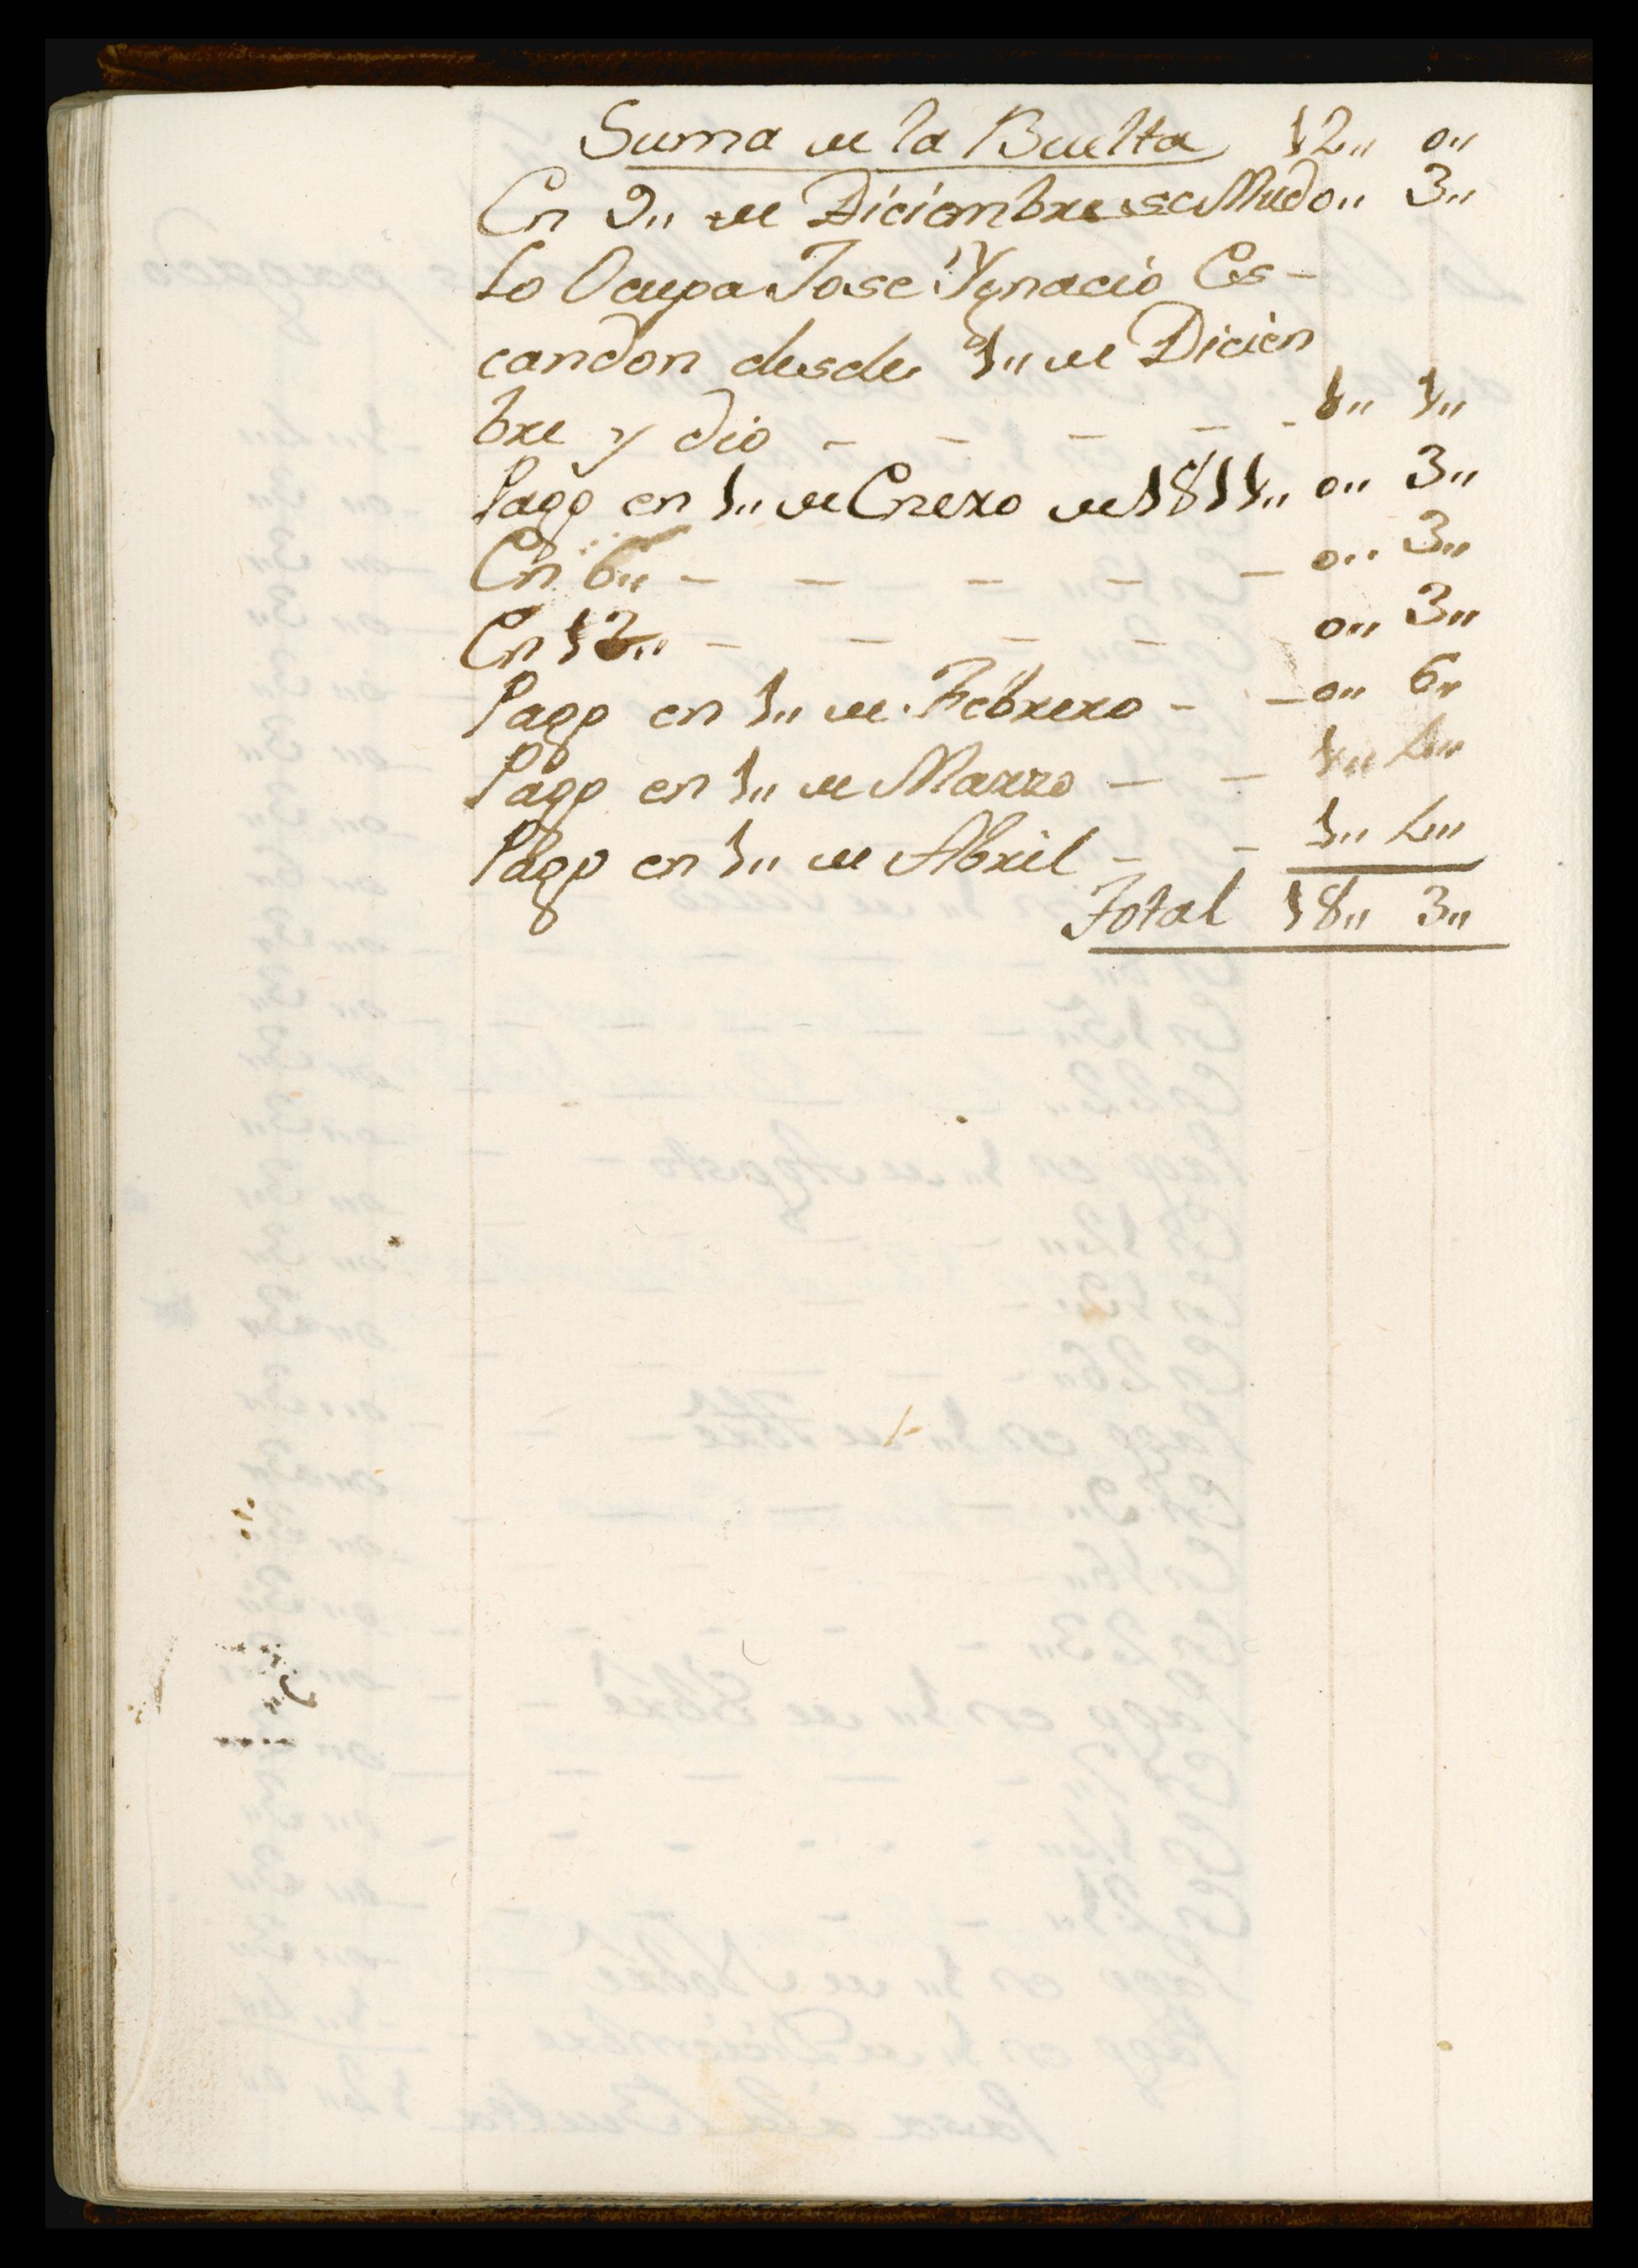 Suma de la Buelta 12,, 0,,
En 9,, de Diciembre se Mudo,, 3,,
Lo Ocupa Jose Ygnacio Es-
candon desde 1,, de Dicien
bre y dio - - - - - 1,, 1,,
Pago en 1,, de Enero de 1811,, 0,, 3,,
En 6,, - - - - - 0,, 3,,
En 12,, - - - - 0,, 3,,
Pago en 1,, de Febrero - - 0,, 6,,
Pago en 1,, de Marzo - - 1,, 4,,
Pago en 1,, de Abril - - 1,, 4,,
Total 18,, 3,,